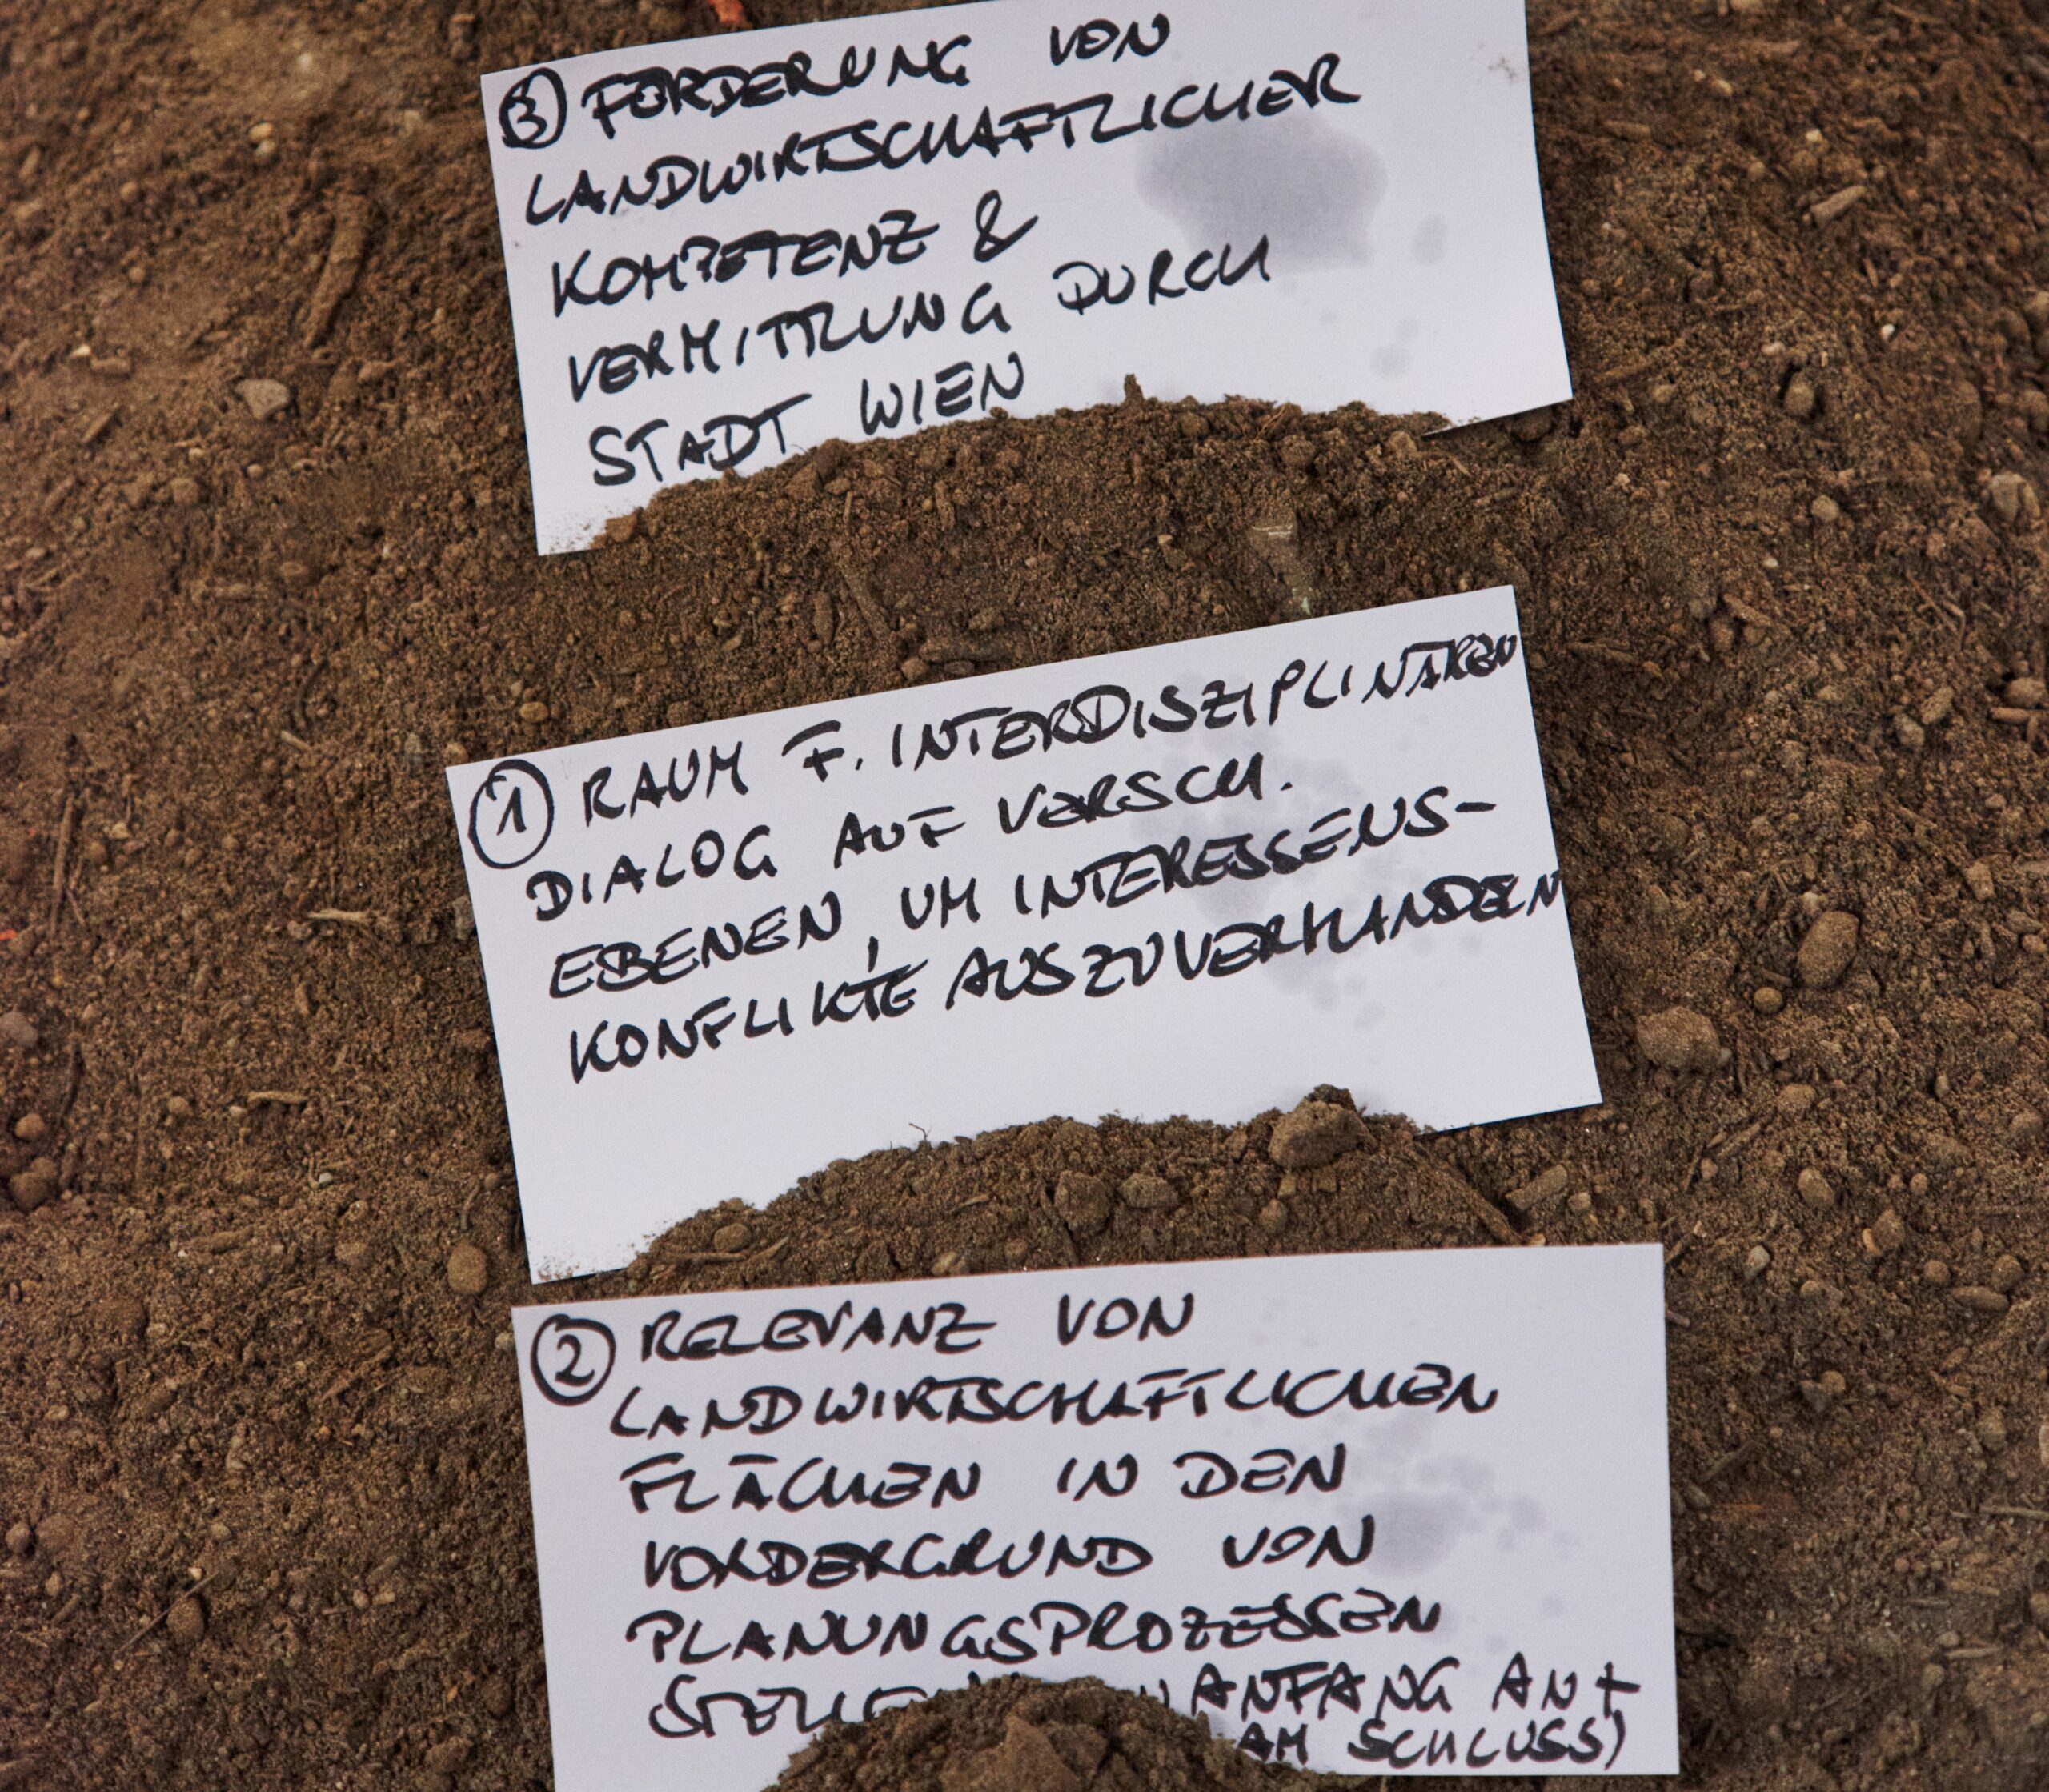 ③ FÖRDERUNG VON
LANDWIRTSCHAFTLICHER
KOMPETENZ &
VERMITTLUNG DURCH
STADT WIEN
① RAUM F. INTERDISZIPLINÄREN
DIALOG AUF VERSCH.
EBENEN, UM INTERESSENS-
KONFLIKTE AUSZUVERHANDELN
② RELEVANZ VON
LANDWIRTSCHAFTLICHEN
FLÄCHEN IN DEN
VORDERGRUND VON
PLANUNGSPROZESSEN
ANFANG AN +
AM SCHLUSS)